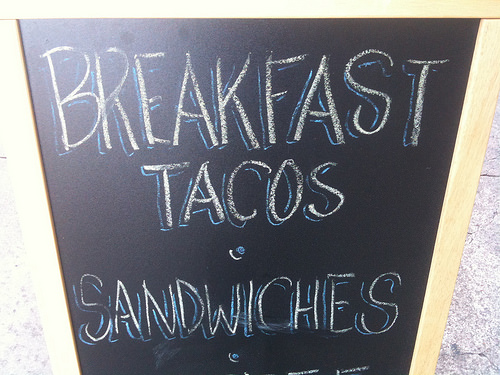 BREAKFAST
TACOS
SANDWICHES